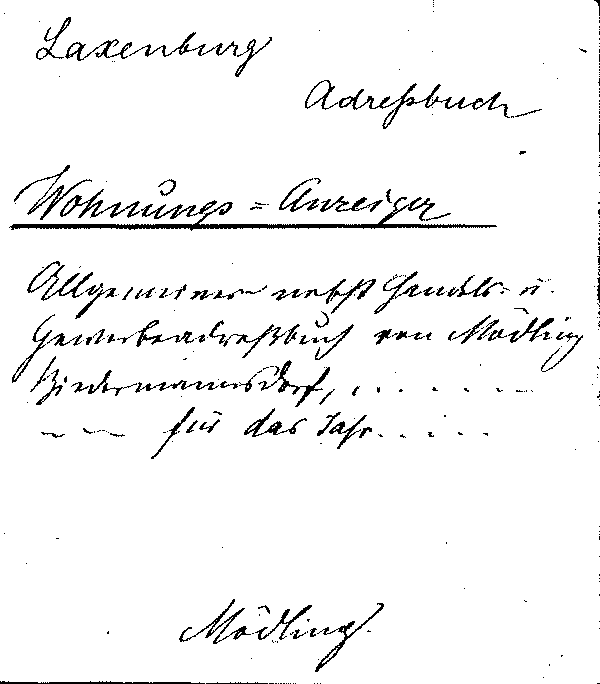 Laxenburg
Adreßbuch
Wohnungs=Anzeiger
Allgemeiner nebst Handels- u.
Gewerbeadreßbuch von Mödling
Biedermannsdorf, . . . . . .
— — für das Jahr . . . . .
Mödling.